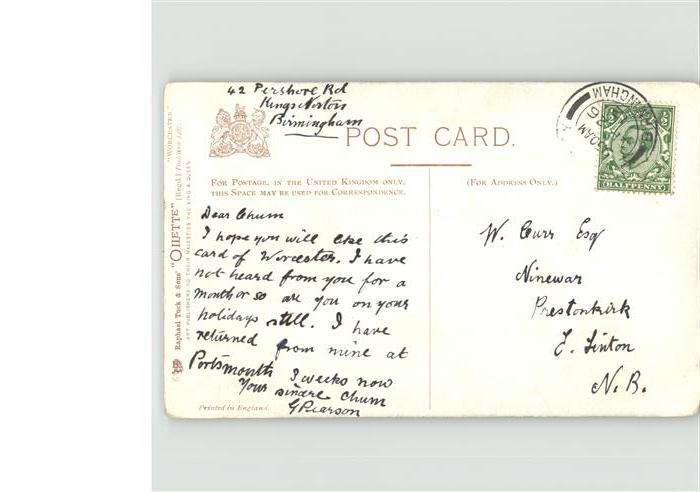 42 Pershore Rd
Kings Norton
Birmingham
POST CARD.
FOR POSTAGE, IN THE UNITED KINGDOM ONLY,
THIS SPACE MAY BE USED FOR CORRESPONDENCE.
(FOR ADDRESS ONLY.)
Dear Chum
I hope you will like this
card of Worcester. I have
not heard from you for a
month or so are you on your
holidays still. I have
returned from mine at
Portsmouth 3 weeks now
Your sincere chum
G Pearson
W. Curr Esq
Ninewar
Prestonkirk
E. Linton
N.B.
HALFPENNY
Raphael Tuck & Sons' "OILETTE" [Regd.] "WORCESTER"
ART PUBLISHERS TO THEIR MAJESTIES THE KING & QUEEN
Printed in England.